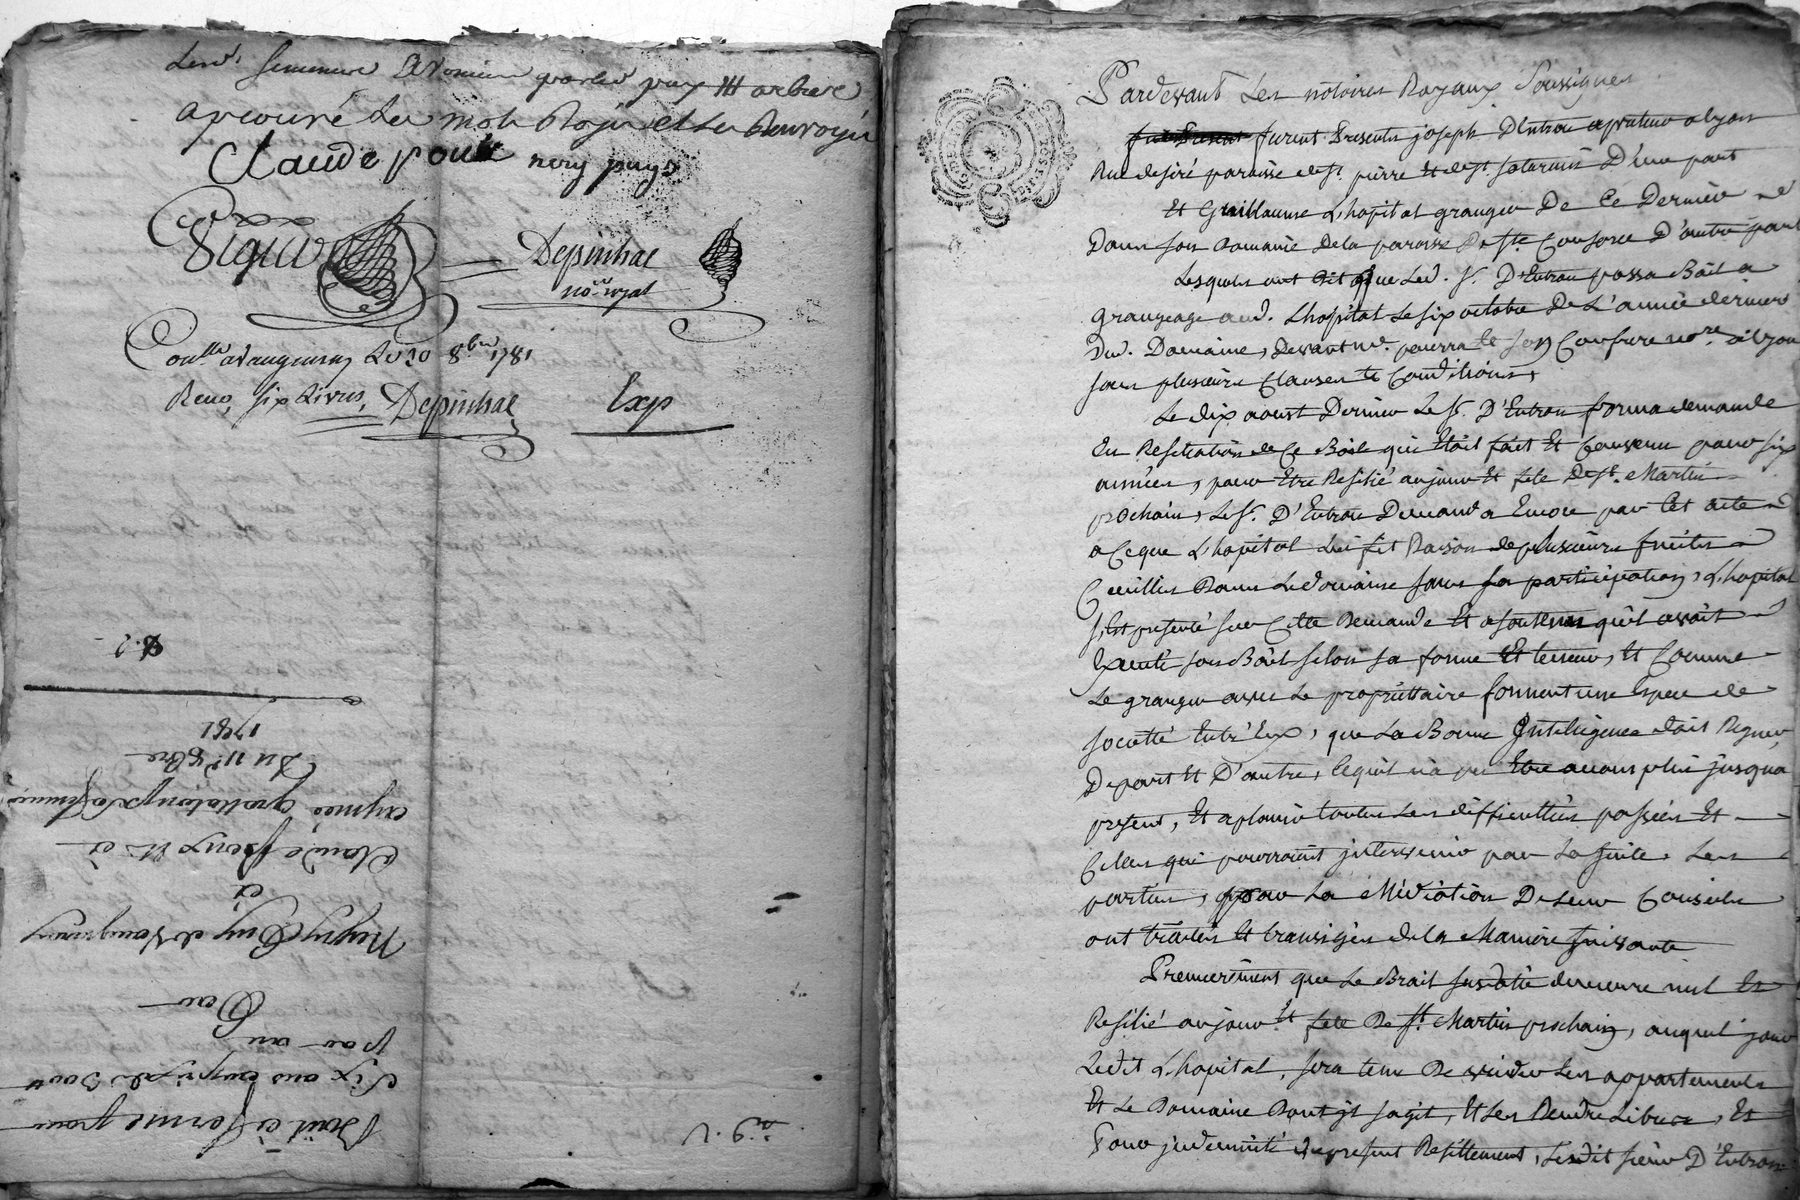 apreuvé les mots Raÿes et les Renvoyes
Claude pouit nery puys
Depinhac
no.re royal
8bre 1781
Reçu, six Livres, Depinhac Exp
Bail à ferme pour
Six ans
par an
Par
Puy de Vaugneray
à
Claude et à
sa femme
Du 11e 8bre
1781
Pardevant Les notoires Royaux Soussignés
furent Presents joseph D'Entrou a lyon
Rue desiré paroisse de st. pierre et de st. saturnin D'une part
Et Guillaume L'hopital granger De Ce Dernier
Dans son Domaine de la paroisse De ste. Consorce D'autre part
Lesquels ont dit que Led. Sr. D'Entrou passa Bail a
grangeage aud. L'hopital Le six octobre de L'année derniere
Dud. Domaine, devant me. et son Confrere nore. a lyon
sous plusieurs Clauses et Conditions,
Le dix aoust Dernier Le Sr. D'Entrou forma demande
En Resiliation de Ce Bail qui Etoit fait Et Convenu pour six
années, pour Etre Resilié au jour Et fete De St. Martin
prochain, Le Sr. D'Entrou Demanda Encore par Cet acte
a Ceque L'hopital lui fit Raison de plusieurs fruits
Cueillis Dans Le domaine sans sa participation, L'hopital
s'Est presenté sur Cette Demande Et a soutenu qu'il avoit
Executé son Bail selon sa forme Et teneur, Et Comme
Le granger avec Le proprietaire forment une Espece de
société Entr'Eux, que La Bonne Intelligence doit Regner
De part Et D'autre, Ce qui n'a pu Etre accompli jusqua
present, Et aplanir toutes Les difficultées passées Et
Celles qui pourroient intervenir par La suite, Les
parties, par La Médiation De Leur Conseils
ont traités Et transigés de la Maniere suivante
Premierement que Le Bail susdaté demeure nul Et
Resilié au jour Et fete De St. Martin prochain, auquel jour
Ledit L'hopital, sera tenu De vuider Les appartements
Et Le Domaine Dont il s'agit, Et Les Rendre Libres, Et
Pour indemnité du present Resiliement, Ledit sieur D'Entrou